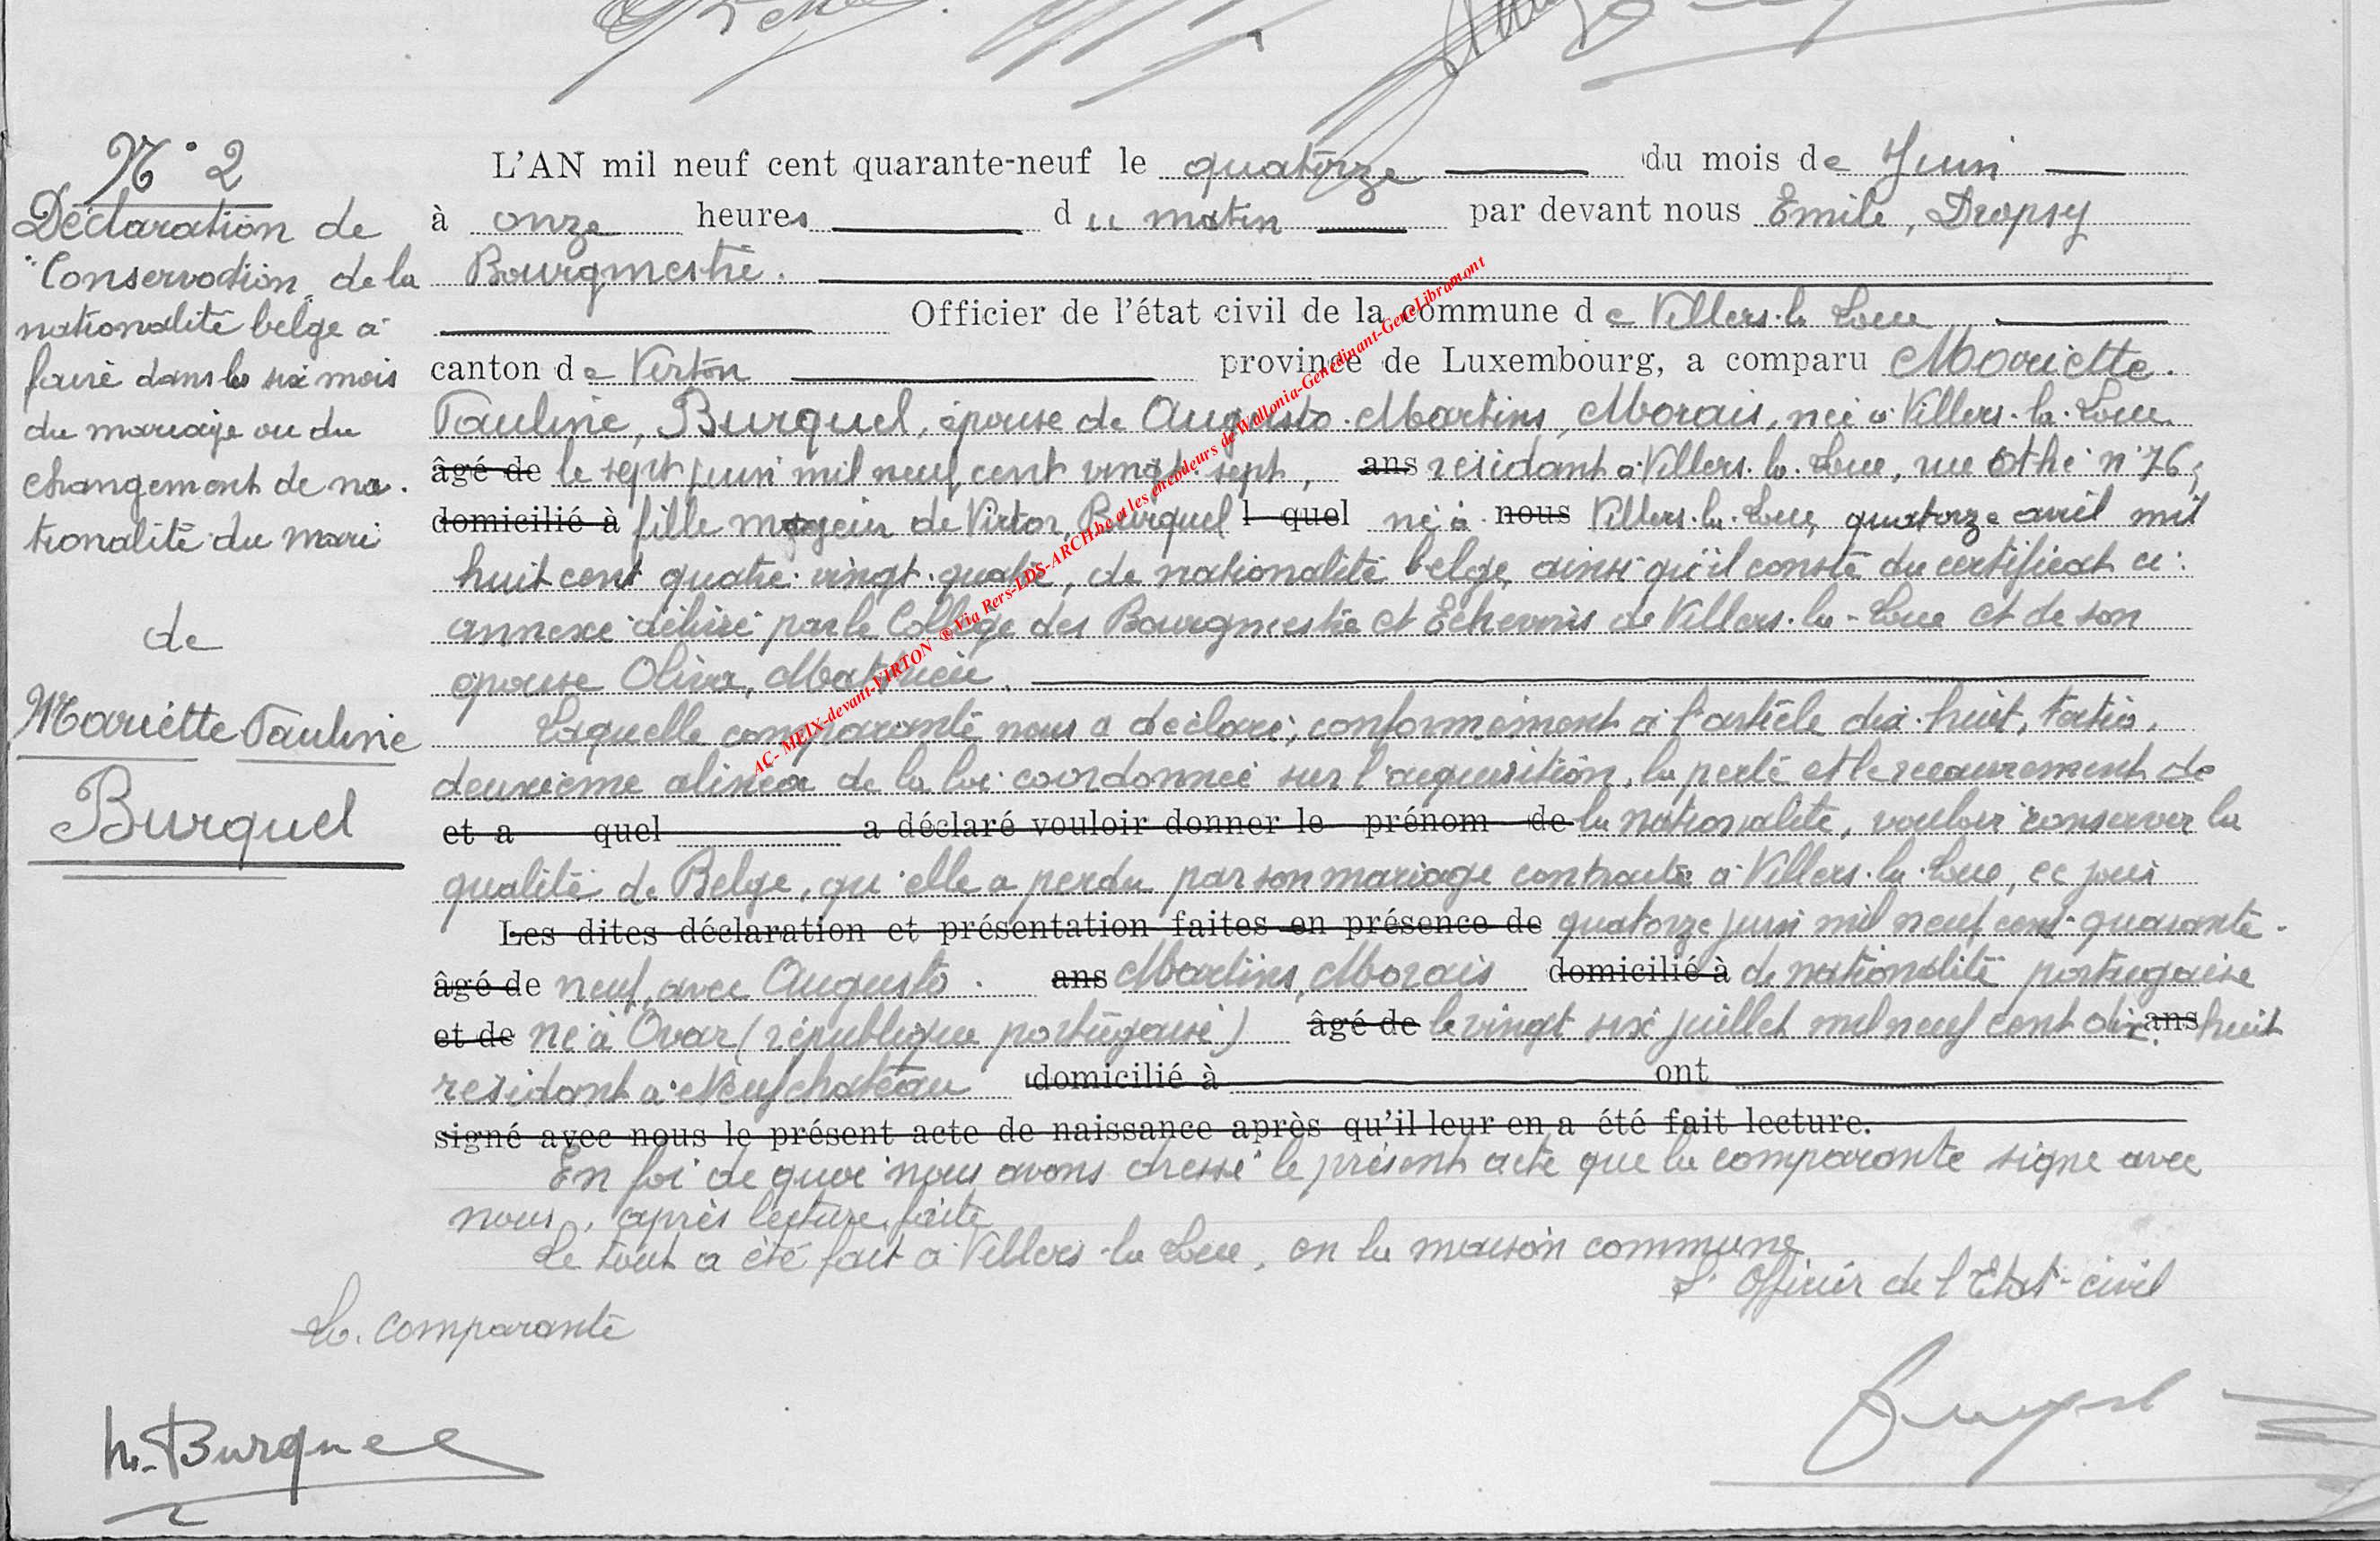 N° 2
Déclaration de
"Conservation" de la
nationalité belge à
faire dans les six mois
du mariage ou du
changement de na-
tionalité du mari
de
Mariette Pauline
Burquel
L'AN mil neuf cent quarante-neuf le quatorze du mois de Juin
à onze heures du matin par devant nous Emile, Dropsy
Bourgmestre.
Officier de l'état civil de la commune de Villers-la-Loue
canton de Virton province de Luxembourg, a comparu Mariette.
Pauline, Burquel, épouse de Augusto-Martins, Morais, née à Villers-la-Loue
âgé de le sept juin mil neuf cent vingt-sept, ans résidant à Villers-la-Loue, rue Othe n°76,
domicilié à fille majeur de Victor, Burquel l quel né à nous Villers-la-Loue, quatorze avril mil
huit cent quatre-vingt-quatre, de nationalité belge, ainsi qu'il conste du certificat ci-
annexé délivré par le Collège des Bourgmestre et Echevins de Villers-la-Loue et de son
épouse Oliva, Mathieu.
Laquelle comparante nous a déclaré, conformément à l'article dix-huit,
deuxième alinéa de la loi coordonnée sur l'acquisition, la perte et le recouvrement de
et a quel a déclaré vouloir donner le prénom de la nationalité, vouloir conserver la
qualité de Belge, qu'elle a perdu par son mariage contracté à Villers-la-Loue, ce jour
Les dites déclaration et présentation faites en présence de quatorze juin mil neuf cent-quarante-
âgé de neuf, avec Augusto- ans Martins, Morais domicilié à de nationalité portugaise
et de né à Ovar (république portugaise) âgé de le vingt six juillet mil neuf cent dix ans huit
résidant à Neufchateau domicilié à ont
signé avec nous le présent acte de naissance après qu'il leur en a été fait lecture.
En foi de quoi nous avons dressé le présent acte que la comparante signe avec
nous, après lecture faite
Le tout a été fait à Villers-la-Loue, en la maison commune
L'Officier de l'Etat-civil
La comparante
M. Burquel
AC- MEIX-devant-VIRTON ® Via Pers-LDS-ARCH.be et les encodeurs de Wallonia-Genedinant-GeneLibramont